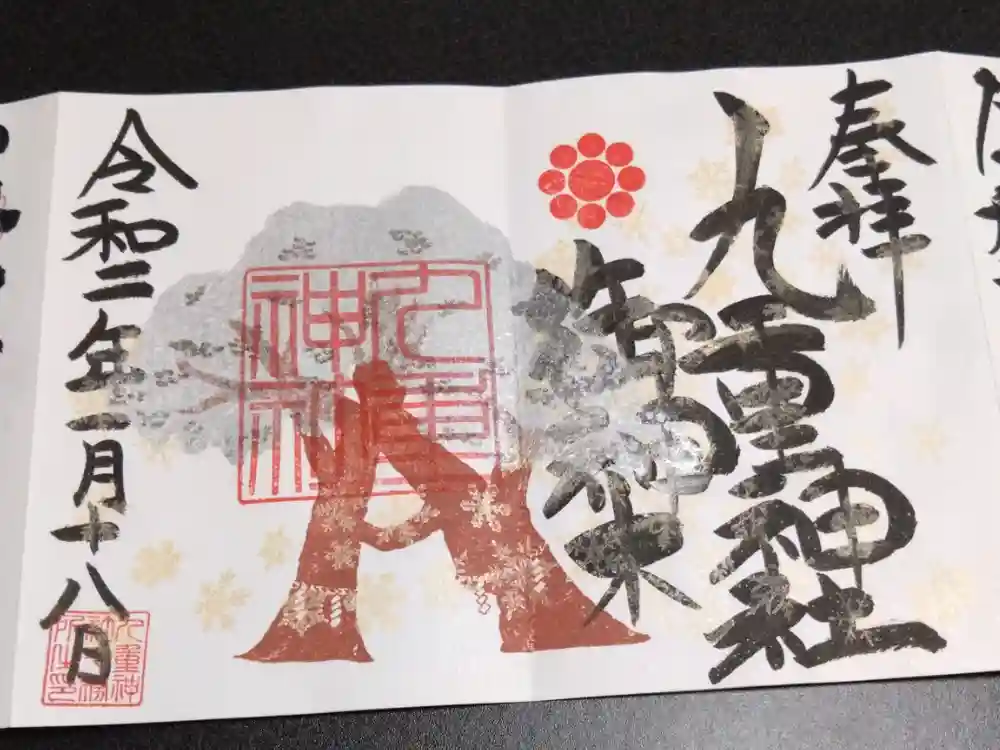 奉拝
九重神社
御神木
九重神社
令和二年一月十八日